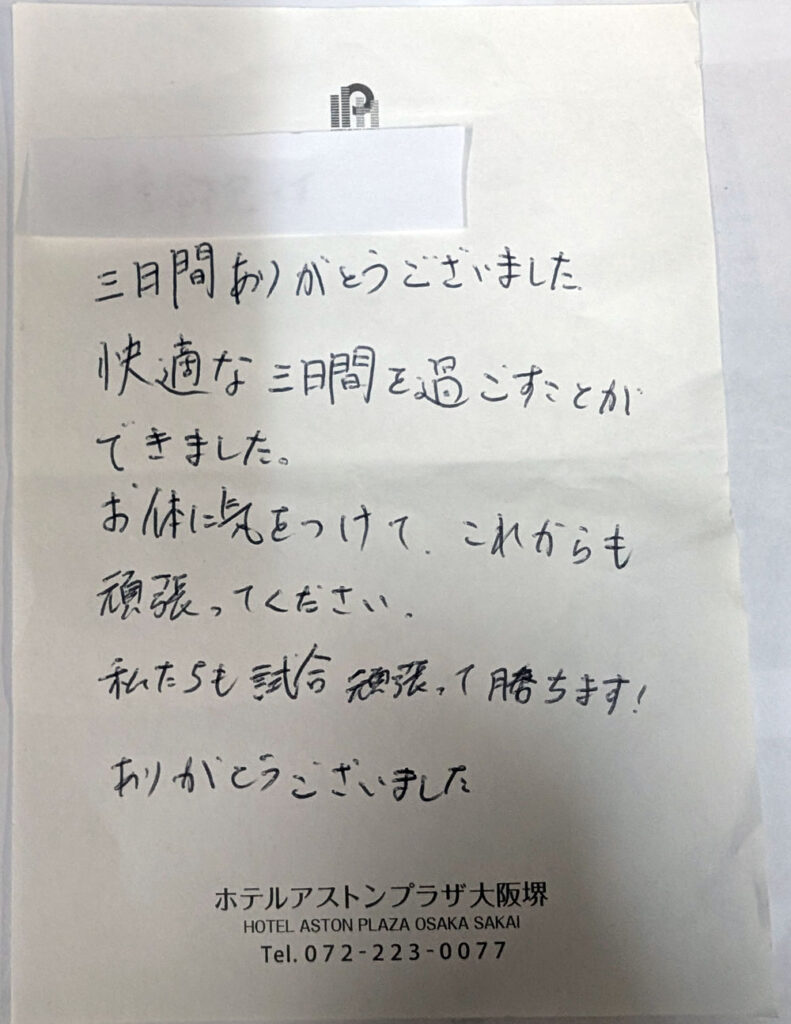 三日間ありがとうございました
快適な三日間を過ごすことが
できました。
お体に気をつけて、これからも
頑張ってください。
私たちも試合頑張って勝ちます!
ありがとうございました
ホテルアストンプラザ大阪堺
HOTEL ASTON PLAZA OSAKA SAKAI
Tel. 072-223-0077